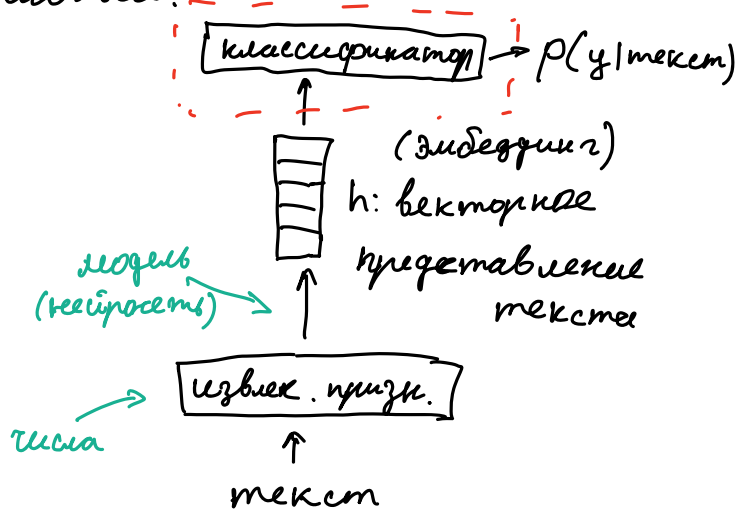 классификатор → p(y|текст)
(эмбеддинг)
h: векторное
представление
текста
модель
(нейросеть)
извлек. призн.
числа
текст